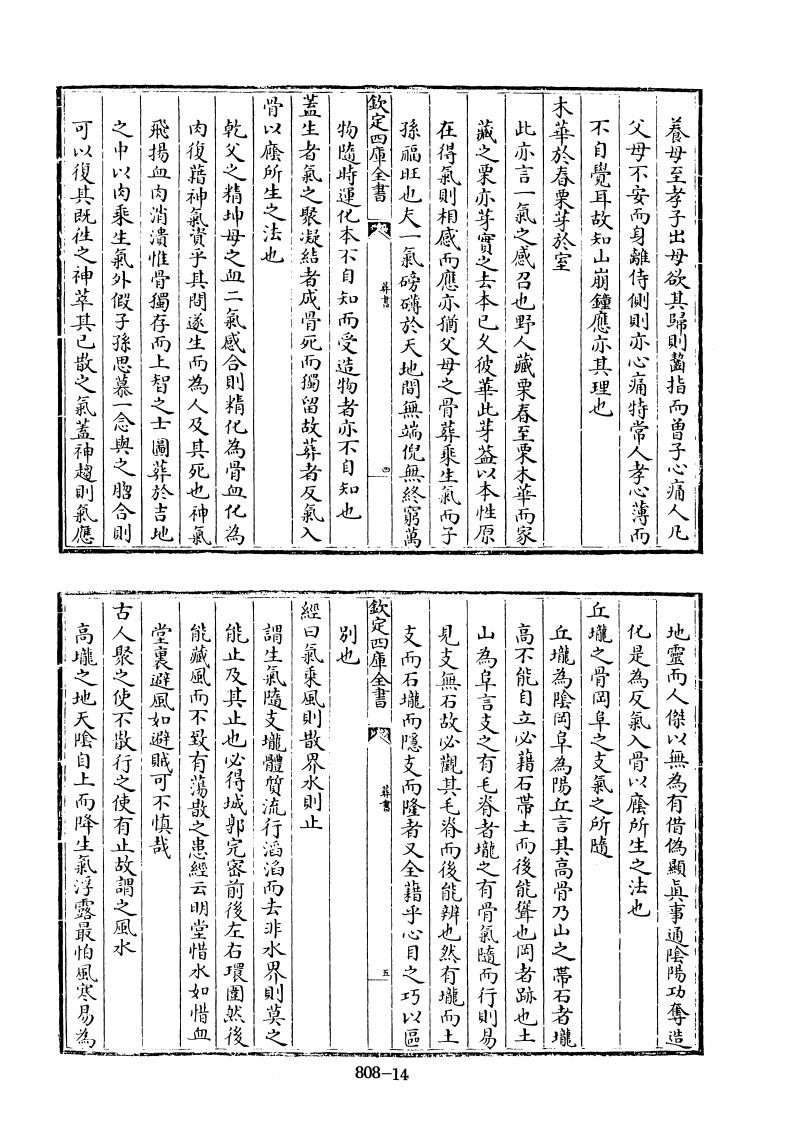 養母至孝子出母欲其歸則齧指而曽子心痛人凡
父母不安而身離侍側則亦心痛特常人孝心薄而
不自覺耳故知山崩鐘應亦其理也
木華於春栗芽於室
此亦言一氣之感召也野人藏栗春至栗木華而家
藏之栗亦芽實之去本已久彼華此芽葢以本性原
在得氣則相感而應亦猶父母之骨葬乘生氣而子
孫福旺也夫一氣磅礴於天地間無端倪無終窮萬
欽定四庫全書
葬書
四
物隨時運化本不自知而受造物者亦不自知也
蓋生者氣之聚凝結者成骨死而獨留故葬者反氣入
骨以廕所生之法也
乾父之精坤母之血二氣感合則精化為骨血化為
肉復藉神氣資乎其間遂生而為人及其死也神氣
飛揚血肉消潰惟骨獨存而上智之士圖葬於吉地
之中以内乘生氣外假子孫思慕一念與之脗合則
可以復其既徃之神萃其已散之氣蓋神趨則氣應
地靈而人傑以無為有借偽顯眞事通陰陽功奪造
化是為反氣入骨以廕所生之法也
丘壠之骨岡阜之支氣之所隨
丘壠為陰岡阜為陽丘言其高骨乃山之帶石者壠
高不能自立必藉石帶土而後能聳也岡者跡也土
山為阜言支之有毛脊者壠之有骨氣隨而行則易
見支無石故必觀其毛脊而後能辨也然有壠而土
支而石壠而隱支而隆者又全藉乎心目之巧以區
欽定四庫全書
葬書
五
別也
經曰氣乘風則散界水則止
謂生氣隨支壠體質流行滔滔而去非水界則莫之
能止及其止也必得城郭完密前後左右環圍然後
能藏風而不致有蕩散之患經云明堂惜水如惜血
堂裏避風如避賊可不慎哉
古人聚之使不散行之使有止故謂之風水
高壠之地天陰自上而降生氣浮露最怕風寒易為
808-14